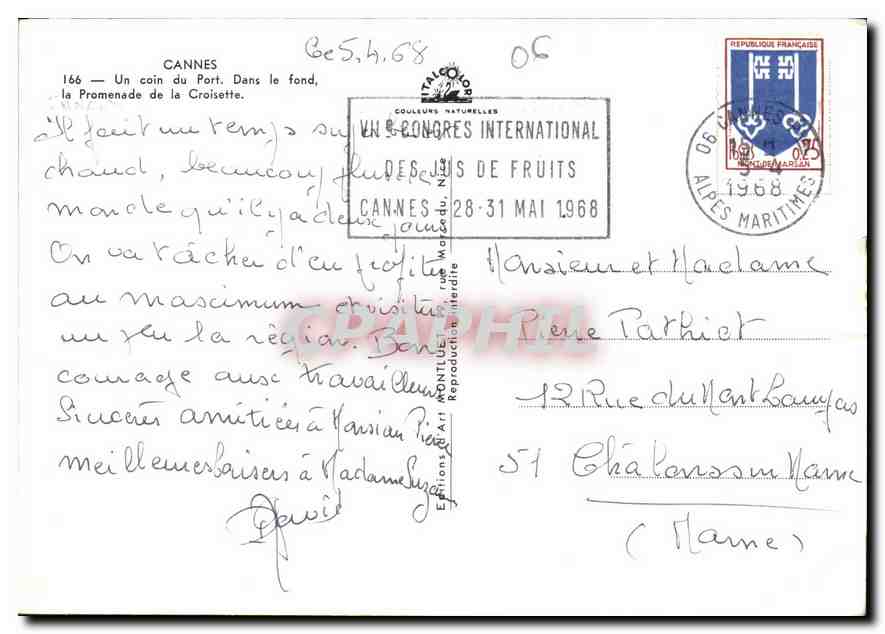 CANNES
166 — Un coin du Port. Dans le fond,
la Promenade de la Croisette.
Ce 5.4.68
06
ITALCOLOR
COULEURS NATURELLES
VIIe CONGRES INTERNATIONAL
DES JUS DE FRUITS
CANNES - 28-31 MAI 1968
REPUBLIQUE FRANÇAISE
0,25
MONT-DE-MARSAN
06 CANNES
1968
ALPES MARITIMES
Il fait un temps
chaud, beaucoup plus de
monde qu'il y a deux jours
On va tâcher d'en profiter
au mascimum et visiter
un peu la région. Bon
courage aux travailleurs
Sincères amitiées à Monsieur Pierre
meilleurs baisers à Madame Suzan
David
Editions d'Art MONTLUET, rue Marceau, Nice
Reproduction interdite
CPAPHIL
Monsieur et Madame
Pierre Pathiot
12 Rue du Mont
51 Châlons sur Marne
(Marne)